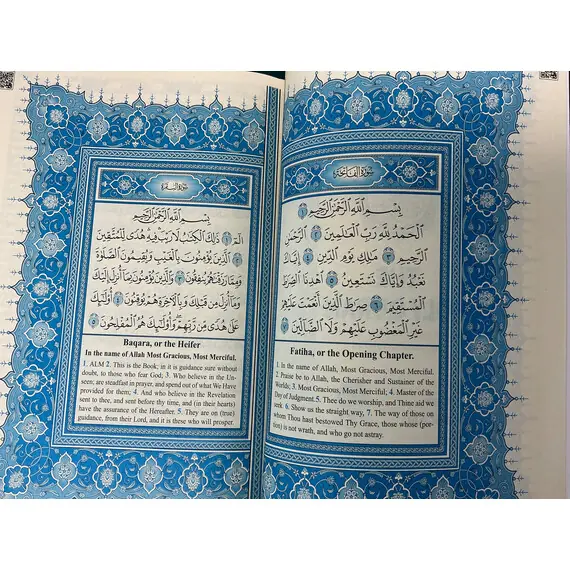 سُورَةُ الفَاتِحَةِ
بِسْمِ ٱللَّهِ ٱلرَّحْمَٰنِ ٱلرَّحِيمِ ١
ٱلْحَمْدُ لِلَّهِ رَبِّ ٱلْعَٰلَمِينَ ٢ ٱلرَّحْمَٰنِ
ٱلرَّحِيمِ ٣ مَٰلِكِ يَوْمِ ٱلدِّينِ ٤ إِيَّاكَ
نَعْبُدُ وَإِيَّاكَ نَسْتَعِينُ ٥ ٱهْدِنَا ٱلصِّرَٰطَ
ٱلْمُسْتَقِيمَ ٦ صِرَٰطَ ٱلَّذِينَ أَنْعَمْتَ عَلَيْهِمْ
غَيْرِ ٱلْمَغْضُوبِ عَلَيْهِمْ وَلَا ٱلضَّآلِّينَ ٧
Fatiha, or the Opening Chapter.
1. In the name of Allah, Most Gracious, Most Merciful.
2. Praise be to Allah, the Cherisher and Sustainer of the
Worlds; 3. Most Gracious, Most Merciful; 4. Master of the
Day of Judgment. 5. Thee do we worship, and Thine aid we
seek. 6. Show us the straight way, 7. The way of those on
whom Thou hast bestowed Thy Grace, those whose (por-
tion) is not wrath, and who go not astray.
سُورَةُ البَقَرَةِ
بِسْمِ ٱللَّهِ ٱلرَّحْمَٰنِ ٱلرَّحِيمِ
الٓمٓ ١ ذَٰلِكَ ٱلْكِتَٰبُ لَا رَيْبَ فِيهِ هُدًى لِّلْمُتَّقِينَ
٢ ٱلَّذِينَ يُؤْمِنُونَ بِٱلْغَيْبِ وَيُقِيمُونَ ٱلصَّلَوٰةَ
وَمِمَّا رَزَقْنَٰهُمْ يُنفِقُونَ ٣ وَٱلَّذِينَ يُؤْمِنُونَ بِمَآ أُنزِلَ إِلَيْكَ
وَمَآ أُنزِلَ مِن قَبْلِكَ وَبِٱلْءَاخِرَةِ هُمْ يُوقِنُونَ ٤ أُو۟لَٰٓئِكَ
عَلَىٰ هُدًى مِّن رَّبِّهِمْ وَأُو۟لَٰٓئِكَ هُمُ ٱلْمُفْلِحُونَ ٥
Baqara, or the Heifer
In the name of Allah Most Gracious, Most Merciful.
1. ALM 2. This is the Book; in it is guidance sure without
doubt, to those who fear God; 3. Who believe in the Un-
seen; are steadfast in prayer, and spend out of what We Have
provided for them; 4. And who believe in the Revelation
sent to thee, and sent before thy time, and (in their hearts)
have the assurance of the Hereafter. 5. They are on (true)
guidance, from their Lord, and it is these who will prosper.